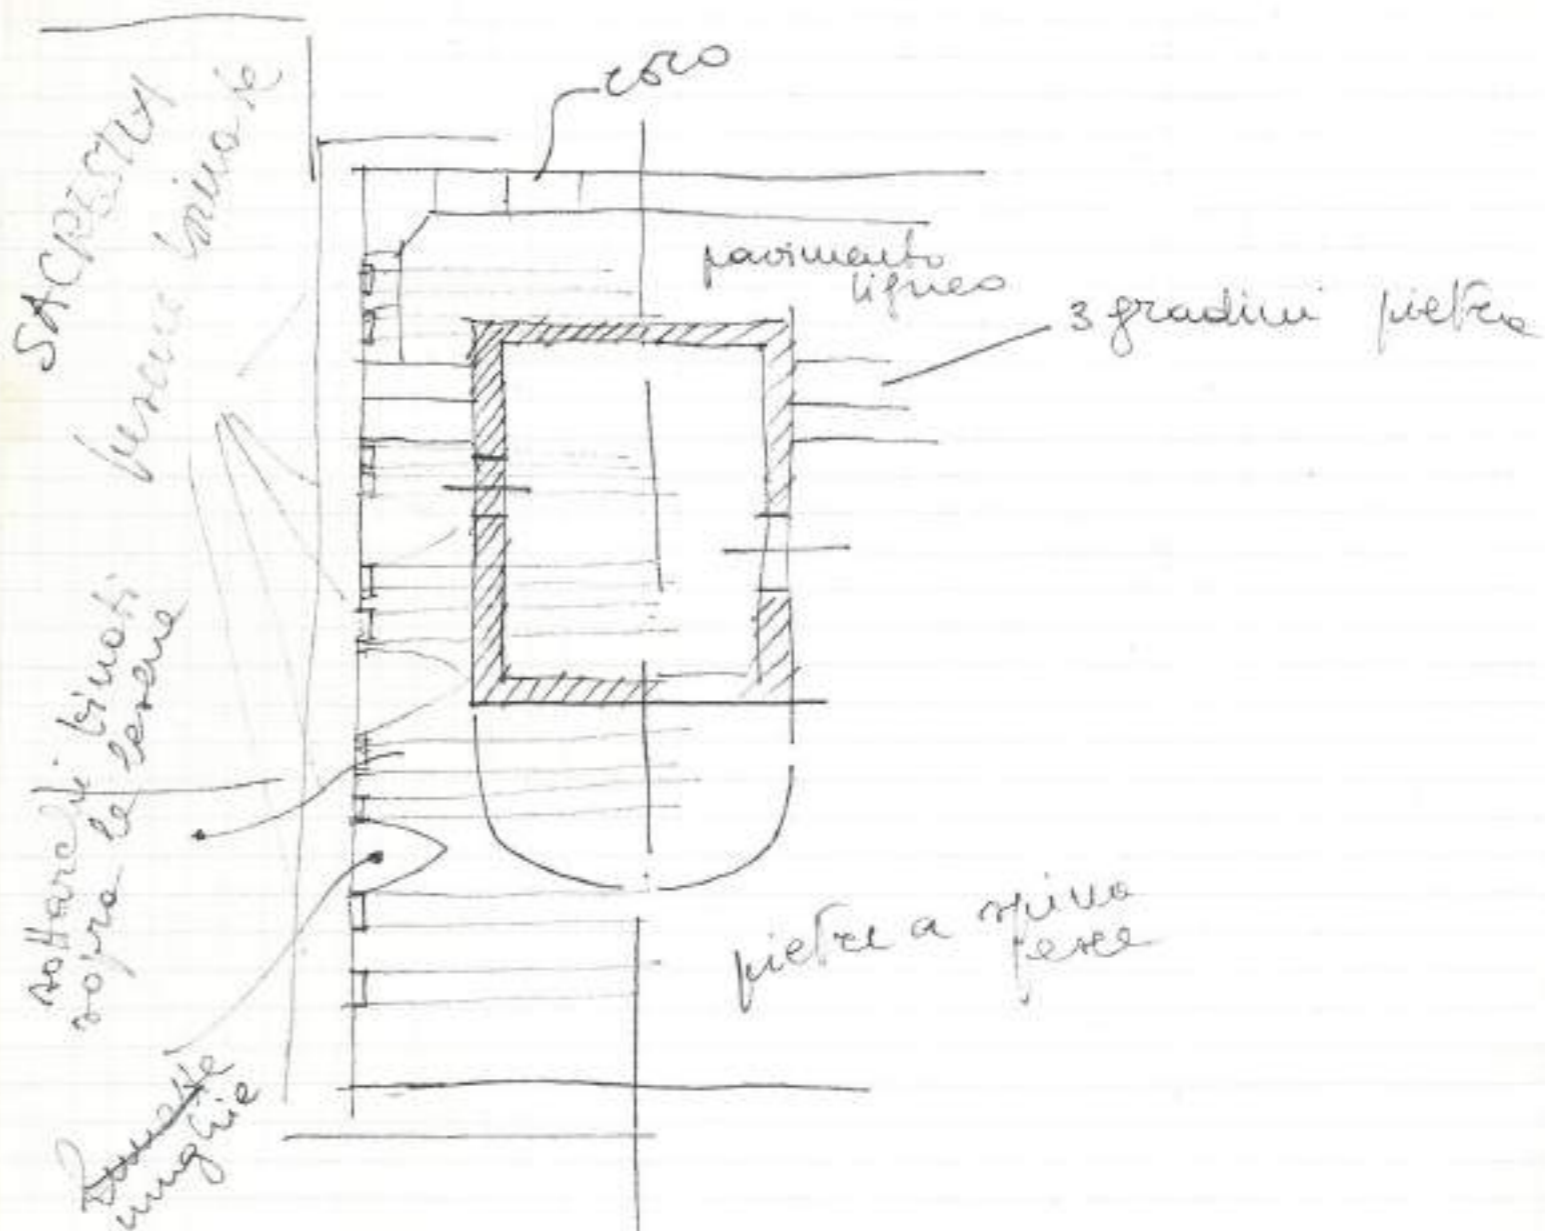 coro
SACRESTIA
lesene binate
pavimento
ligneo
3 gradini pietra
sottarchi binati
sopra le lesene
pietre a spina
pesce
Lunette
unghie